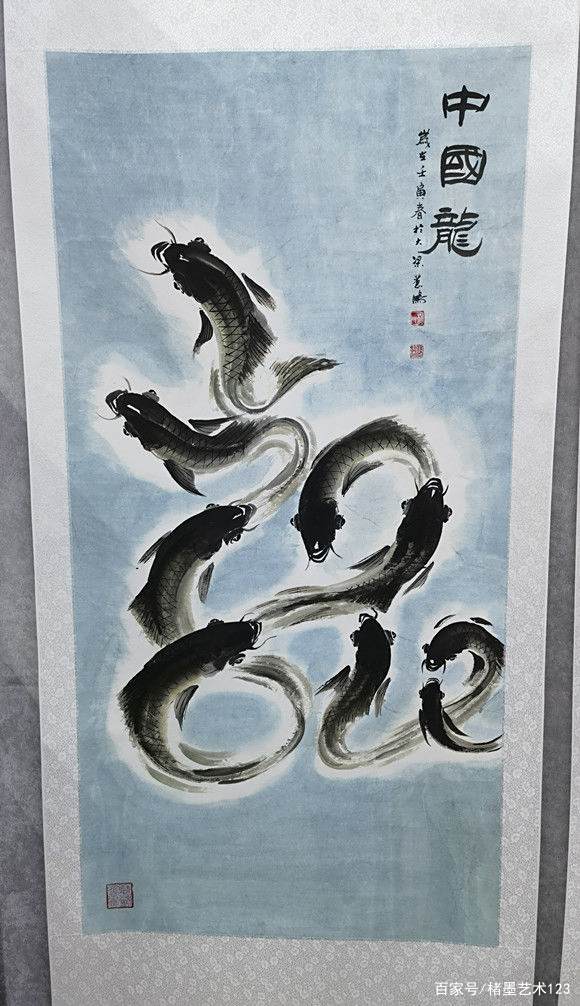 中國龍
歲在壬寅春於大梁
百家号/楮墨艺术123